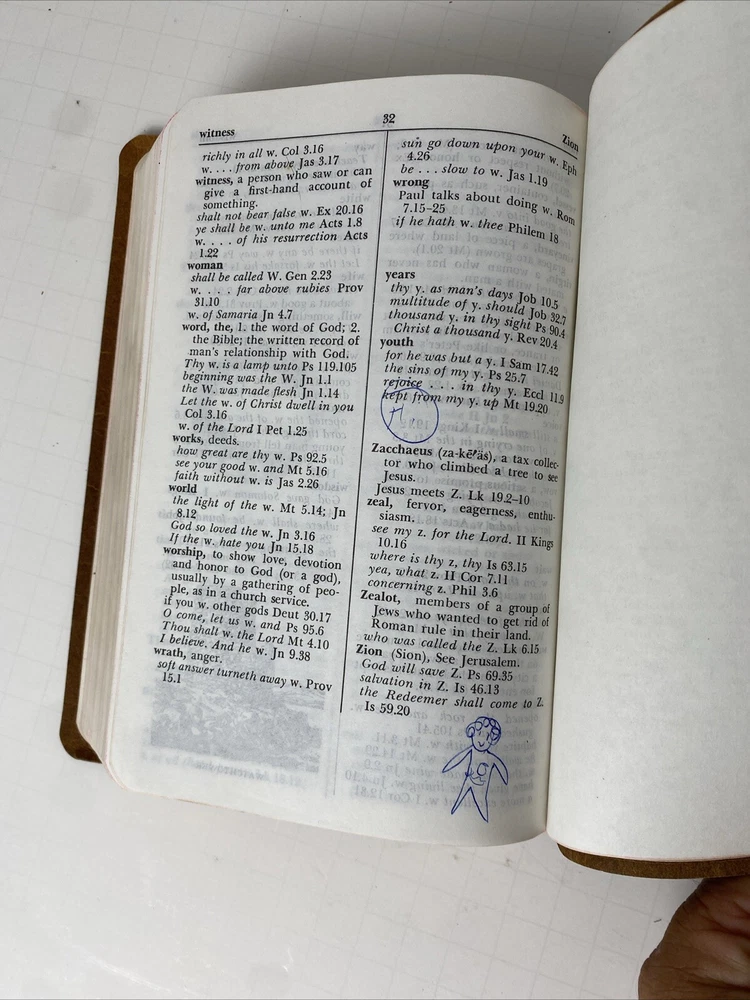 witness
32
Zion
richly in all w. Col 3.16
w. . . . from above Jas 3.17
witness, a person who saw or can
give a first-hand account of
something.
shalt not bear false w. Ex 20.16
ye shall be w. unto me Acts 1.8
w. . . . of his resurrection Acts
1.22
woman
shall be called W. Gen 2.23
w. . . . far above rubies Prov
31.10
w. of Samaria Jn 4.7
word, the, 1. the word of God; 2.
the Bible; the written record of
man's relationship with God.
Thy w. is a lamp unto Ps 119.105
beginning was the W. Jn 1.1
the W. was made flesh Jn 1.14
Let the w. of Christ dwell in you
Col 3.16
w. of the Lord I Pet 1.25
works, deeds.
how great are thy w. Ps 92.5
see your good w. and Mt 5.16
faith without w. is Jas 2.26
world
the light of the w. Mt 5.14; Jn
8.12
God so loved the w. Jn 3.16
If the w. hate you Jn 15.18
worship, to show love, devotion
and honor to God (or a god),
usually by a gathering of peo-
ple, as in a church service.
if you w. other gods Deut 30.17
O come, let us w. and Ps 95.6
Thou shalt w. the Lord Mt 4.10
I believe. And he w. Jn 9.38
wrath, anger.
soft answer turneth away w. Prov
15.1
sun go down upon your w. Eph
4.26
be . . . slow to w. Jas 1.19
wrong
Paul talks about doing w. Rom
7.15-25
if he hath w. thee Philem 18
years
thy y. as man's days Job 10.5
multitude of y. should Job 32.7
thousand y. in thy sight Ps 90.4
Christ a thousand y. Rev 20.4
youth
for he was but a y. I Sam 17.42
the sins of my y. Ps 25.7
rejoice . . . in thy y. Eccl 11.9
kept from my y. up Mt 19.20
Zacchaeus (za-kē′as), a tax collec-
tor who climbed a tree to see
Jesus.
Jesus meets Z. Lk 19.2-10
zeal, fervor, eagerness, enthu-
siasm.
see my z. for the Lord. II Kings
10.16
where is thy z, thy Is 63.15
yea, what z. II Cor 7.11
concerning z. Phil 3.6
Zealot, members of a group of
Jews who wanted to get rid of
Roman rule in their land.
who was called the Z. Lk 6.15
Zion (Sion), See Jerusalem.
God will save Z. Ps 69.35
salvation in Z. Is 46.13
the Redeemer shall come to Z.
Is 59.20